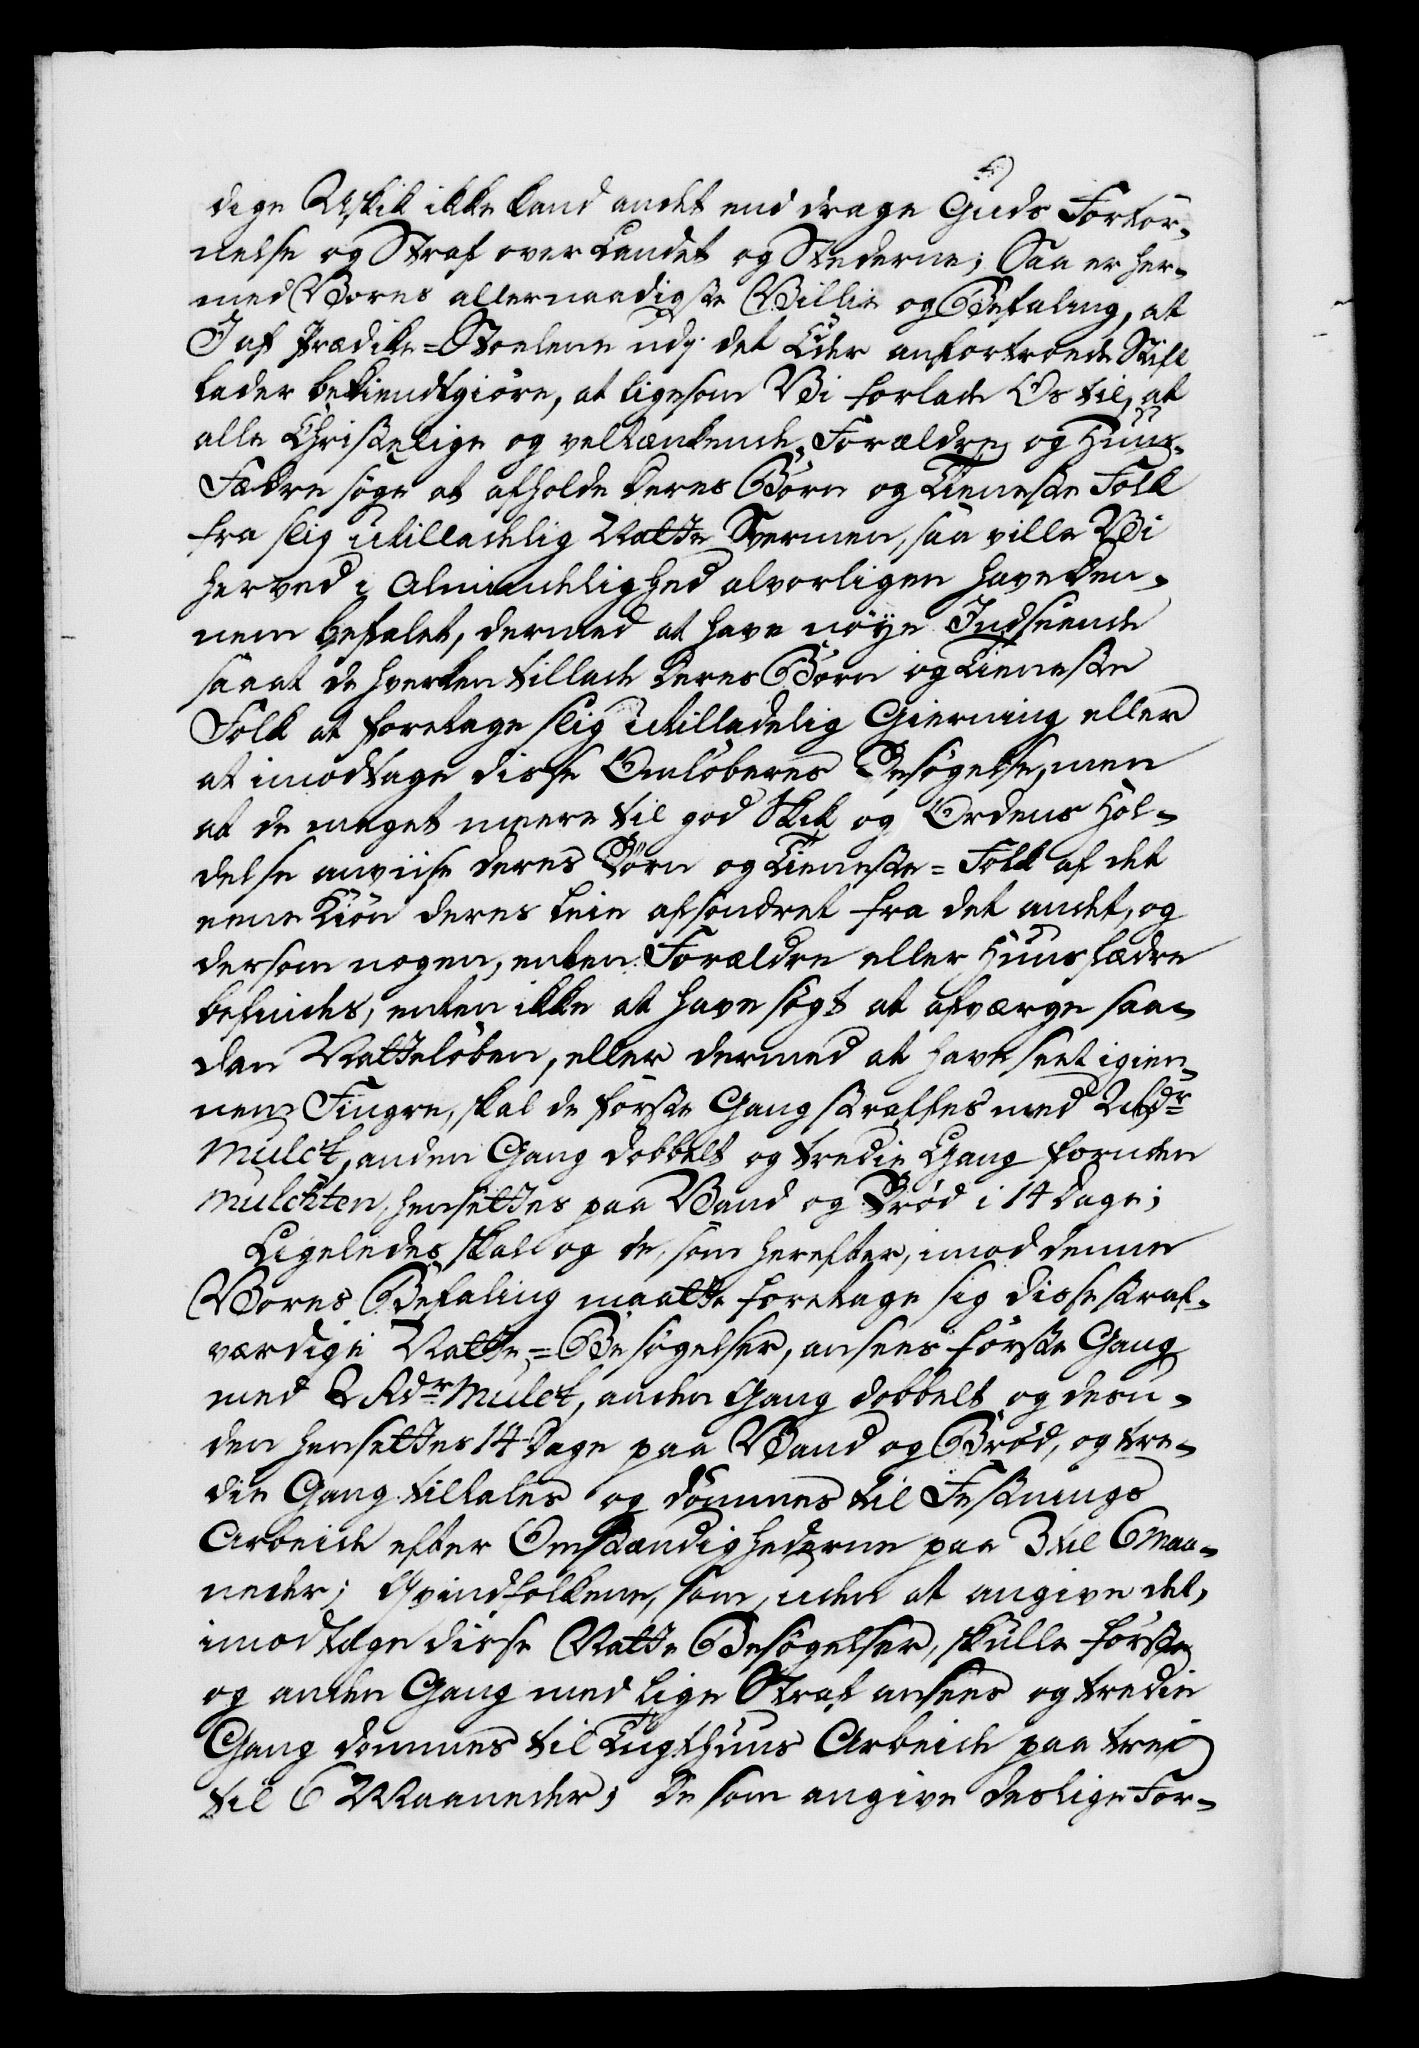 dige Uskik ikke kand andet end drage Guds Fortör¬
nelse og Straf over Landet og Stederne; Saa er her¬
med Vores allernaadigste Villie og Befaling, at
I af Prædike=Stoelene udj det Eder anfortroede Stift
lader bekiendtgiöre, at ligesom Vi forlade Os til, at
alle Christelige og veltænkende Forældre og Huus¬
Fædre söge at afholde deres Börn og Tieneste Folk
fra slig utilladelig Natte Svermen, saa ville Vi
herved i Almindelighed alvorligen have den¬
nem befalet, dermed at have nöye Indseende
saa at de hverken tillade deres Börn og Tieneste
Folk at foretage slig utilladelig Gierning eller
at imodtage disse Omlöberes Besögelse, men
at de meget meere til god Skik og Ordens Hol¬
delse anviise deres Börn og Tieneste=Folk af det
eene Kiön deres Leie afsondret fra det andet, og
dersom nogen, enten Forældre eller Huusfædre
befindes, enten ikke at have sögt at afværge saa¬
dan Natteløben, eller dermed at have seet igien¬
nem Fingre, skal de förste Gang straffes med 2 Rdr
Mulct, anden Gang dobbelt og tredie Gang foruden
Mulcten, hensettes paa Vand og Bröd i 14 Dage;
Ligeledes skal og de, som herefter, imod denne
Vores Befaling maatte foretage sig disse straf¬
værdige Natte=Besögelser, ansees förste Gang
med 2 Rdr Mulct, anden Gang dobbelt og desu¬
den hensettes 14 Dage paa Vand og Brød, og tre¬
die Gang tiltales og dömmes til Festnings
Arbeide efter Omstændighederne paa 3 til 6 Maa¬
neder; Qvindfolkene, som, uden at angive det,
imodtage disse Natte Besögelser, skulle förste
og anden Gang med lige Straf ansees og tredie
Gang dömmes til Tugthuus Arbeide paa trei
til 6 Maaneder; De som angive deslige For¬